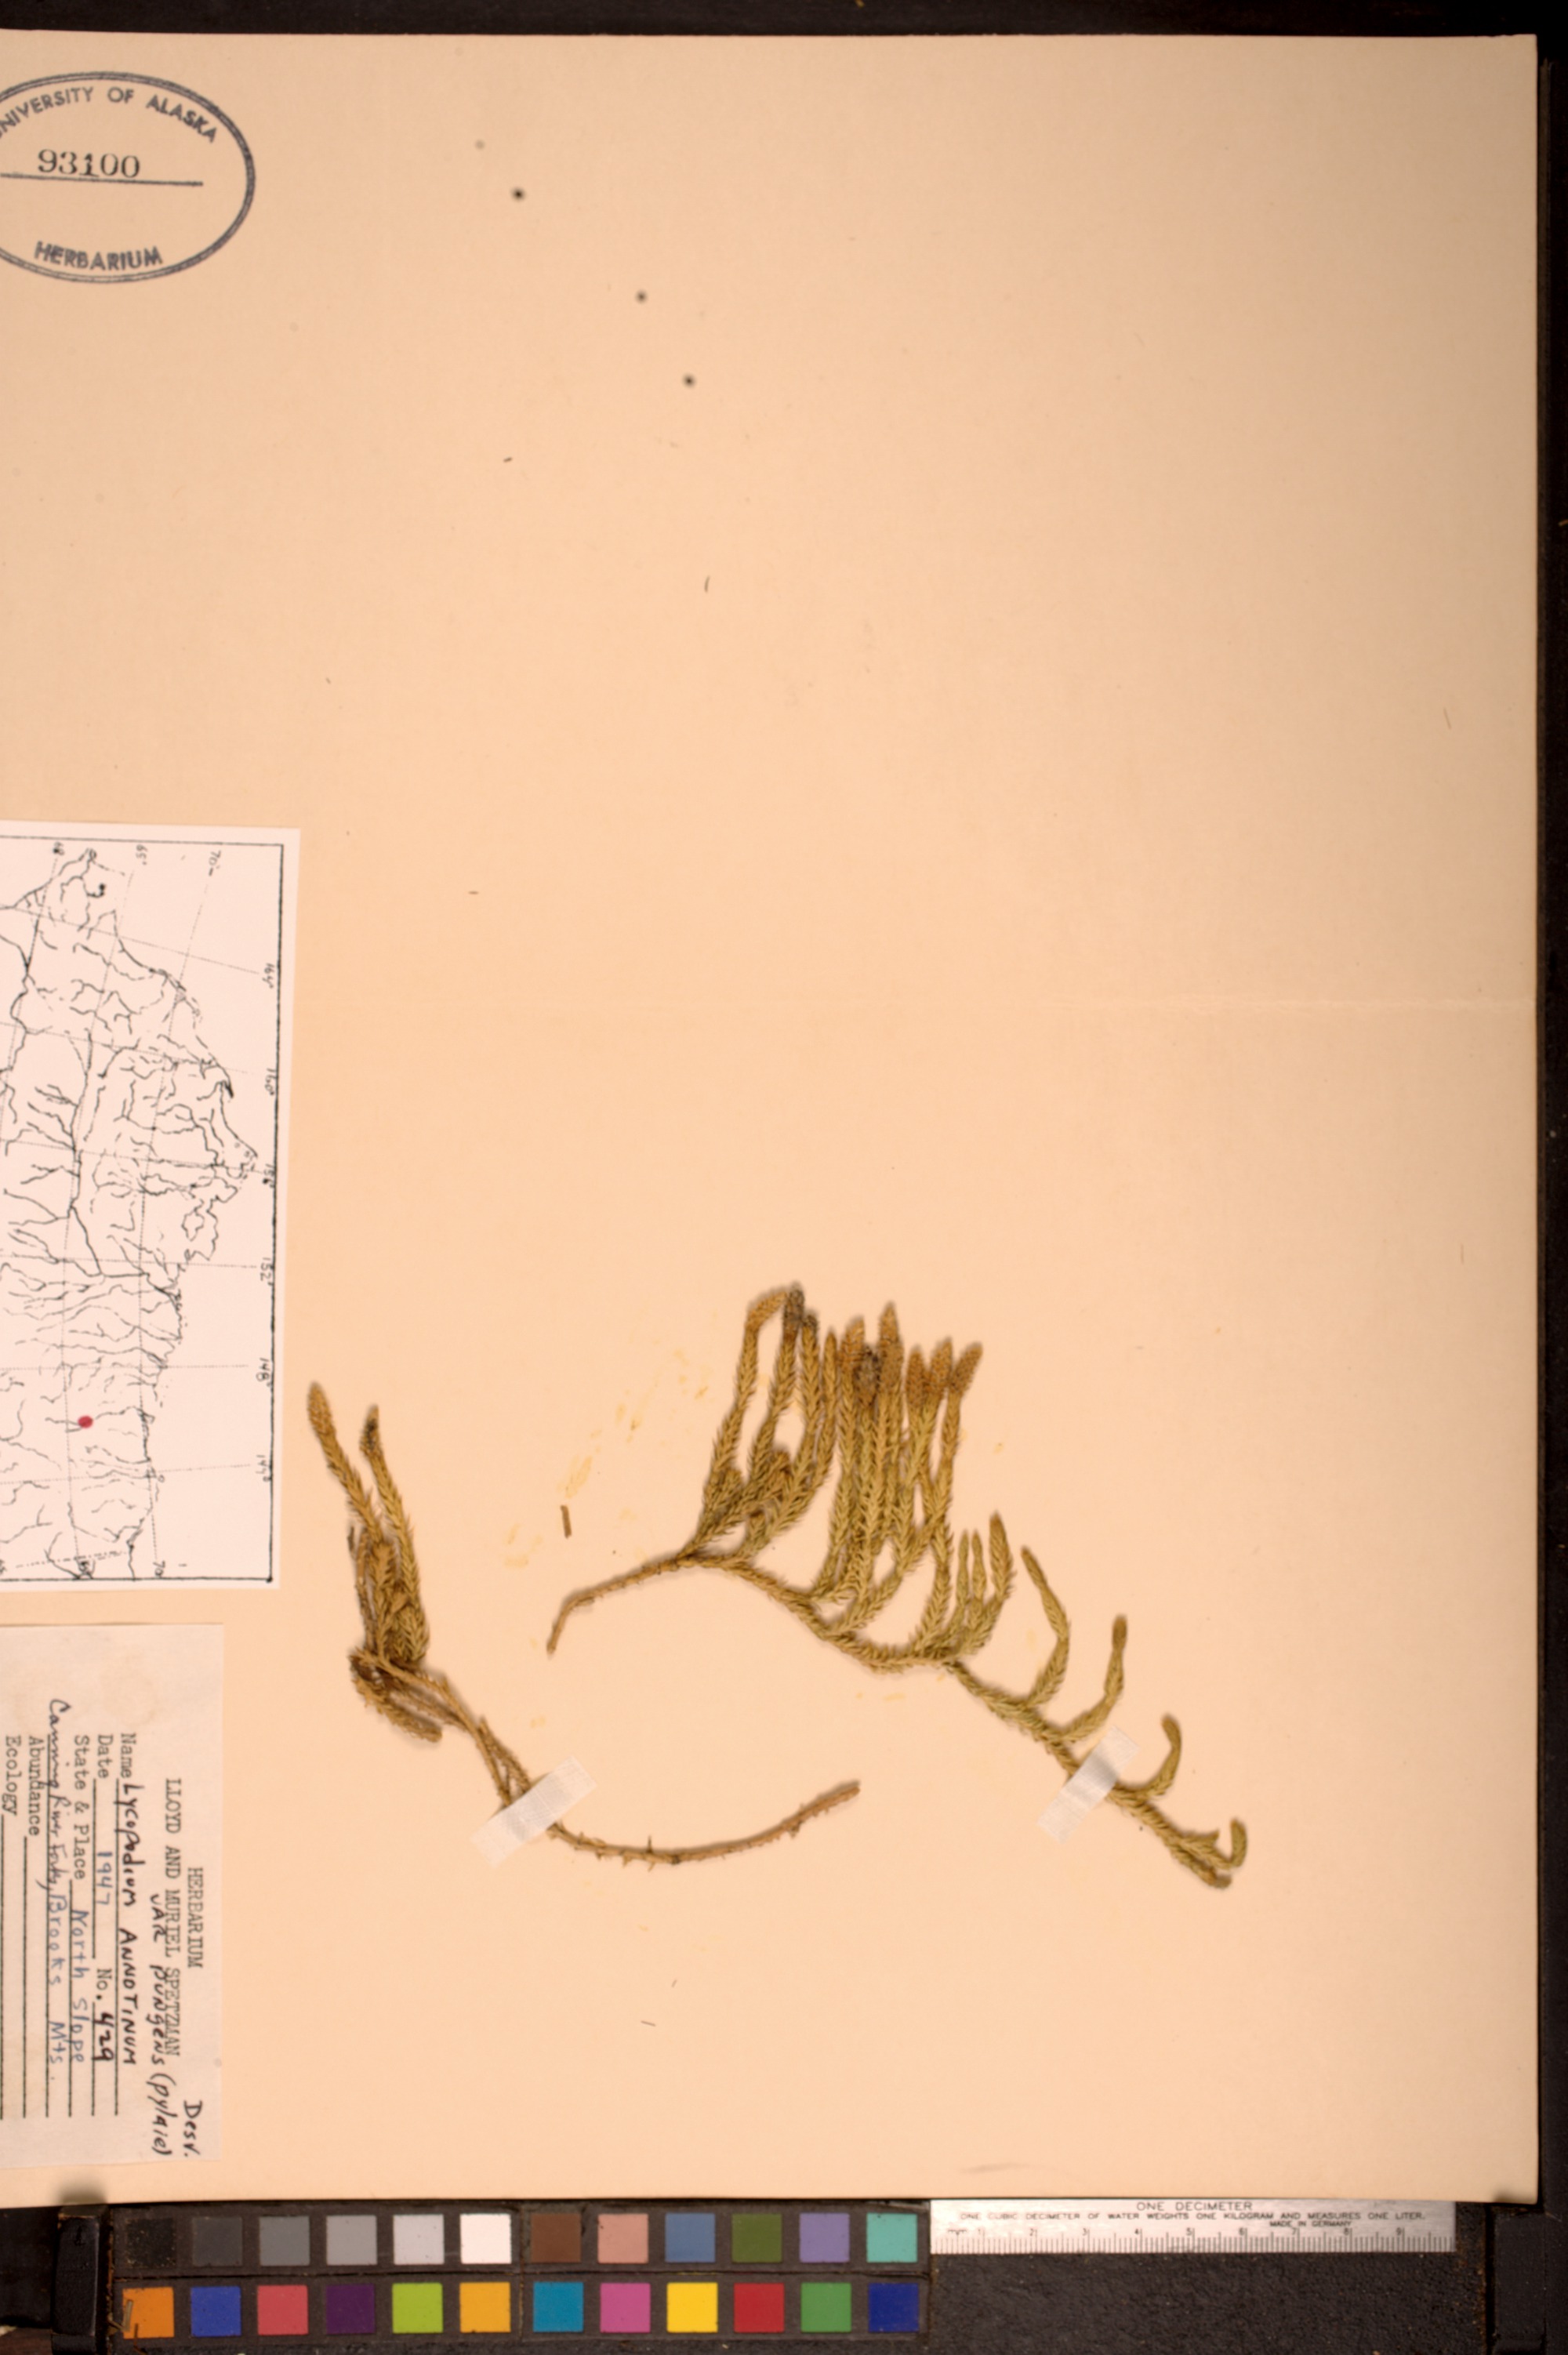 UNIVERSITY OF ALASKA
93100
HERBARIUM
70°
164°
160°
156°
152°
148°
144°
70°
HERBARIUM
LLOYD AND MURIEL SPETZMAN
Desv.
VAR PUNGENS (Pylaie)
Name Lycopodium ANNOTINUM
Date 1947 No. 429
State & Place North Slope
Canning River Forks, Brooks Mts.
Abundance
Ecology
ONE DECIMETER
ONE CUBIC DECIMETER OF WATER WEIGHTS ONE KILOGRAM AND MEASURES ONE LITER.
MADE IN GERMANY
1 2 3 4 5 6 7 8 9